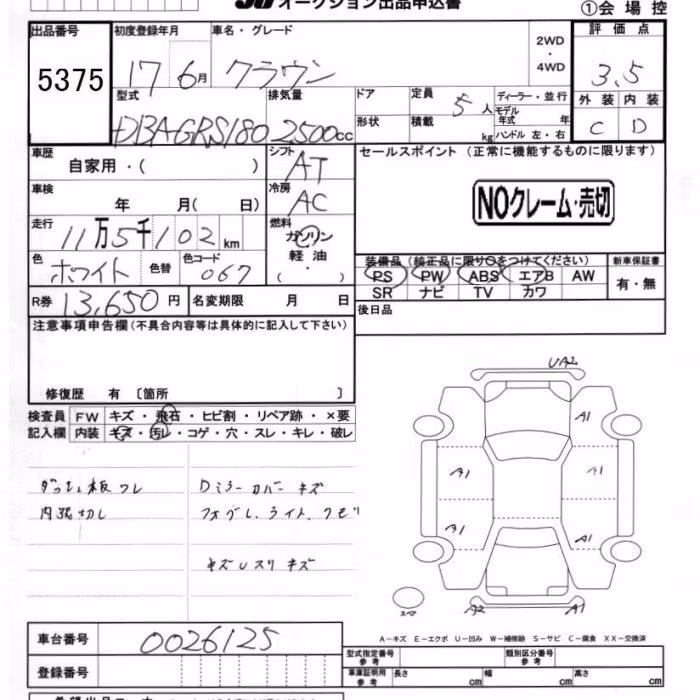 オークション出品申込書
①会場控
出品番号 初度登録年月 車名・グレード 評価点
5375 17 6月 クラウン 2WD・4WD 3.5
型式 排気量 ドア 定員 5人 ディーラー・並行 外装 内装
DBA-GRS180 2500cc 形状 積載 kg モデル年式 年 C D
ハンドル 左・右
車歴 自家用・( ) シフト AT セールスポイント (正常に機能するものに限ります)
車検 年 月( 日) 冷房 AC NOクレーム・売切
走行 11万5千102km 燃料 ガソリン
軽油
( ・ )
色 ホワイト 色替 色コード 067 装備品 (純正品に限り○をつけてください) 新車保証書
PS PW ABS エアB AW 有・無
SR ナビ TV カワ
R券 13,650円 名変期限 月 日 後日品
注意事項申告欄(不具合内容等は具体的に記入して下さい)
修復歴 有 〔箇所 〕
検査員 FW キズ・飛石・ヒビ割・リペア跡・×要
記入欄 内装 キズ・汚レ・コゲ・穴・スレ・キレ・破レ
UA2
A1
A1 A1
A1 A1
ダッシュ板ワレ Dミラーカバーキズ
内張切レ
キズUスリキズ
スペア A2 A1
A-キズ E-エクボ U-凹み W-補修跡 S-サビ C-腐食 XX-交換済
車台番号 0026125 型式指定番号 参考 類別区分番号 参考
登録番号 車庫証明用 参考 長さ cm 幅 cm 高さ cm